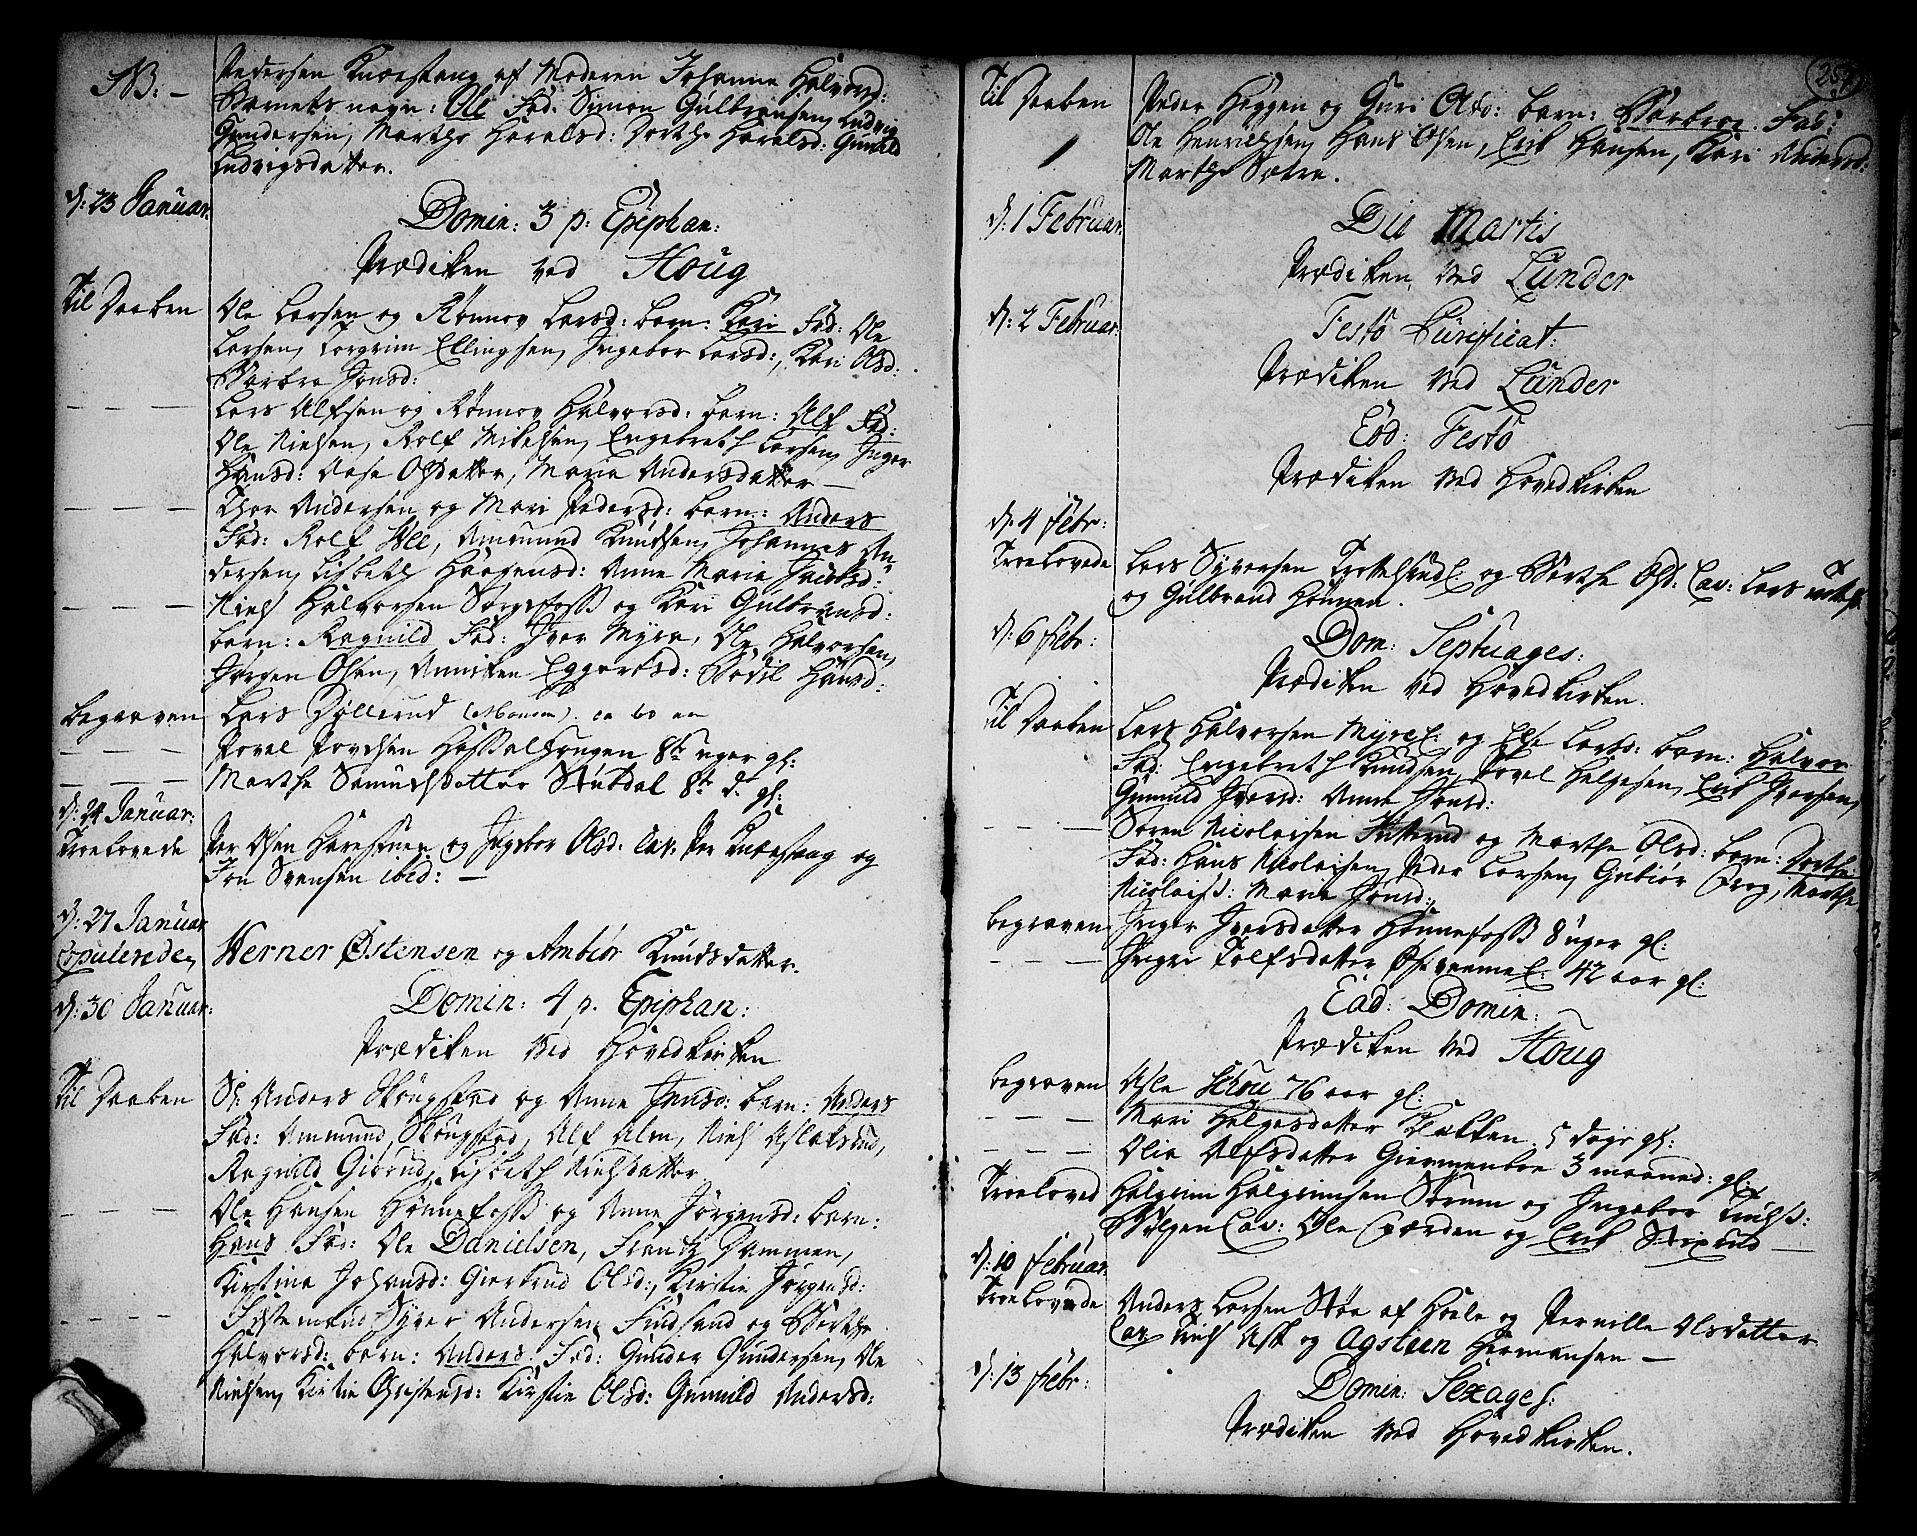 NB. -
Pedersen Knestang af Moderen Johanne Halvord:
Barnets nagn: Ole Fad. Simon Gulbransen, Ludvig
Gundersen, Marthe Haralsd: Dorthe Haralsd: Gunild
Ludvigsdatter.
d: 23 Januar:
Domin: 3 p: Epiphan:
Prædiken ved Houg
Til Daaben
Ole Larsen og Rønnov Larsd: barn: Kari Fad: Ole
Larsen, Torgrim Ellingsen, Ingebor Larsd:, Kari Olsd:
Barbra Jonsd:
Lars Alfsen og Rønnov Halvorsd: barn: Alf Fad:
Ole Nielsen, Rolf Mikelsen, Engebreth Larsen, Inger
Hansd: Aase Olsdatter, Maria Andersdatter
Thor Andersen og Mari Pedersd: barn: Anders
Fad: Rolf Hee, Amound Knudsen, Johannes An-
dersen, Lisbeth Haagensd: Anne Maria Jacobsd:
Niels Halvorsen Sørgefoss og Kari Gulbransd:
barn: Ragnild Fad: Iver Myra, Ole Halvorsen,
Jørgen Olsen, Anniken Eggertsd: Bodil Hansd:
begraven
Lars Døllerud (Monsen). ca 60 aar
Povel Povelsen Hofsalhougen 8te uger gl:
Marthe Samuelsdatter Stubdal 8te d. gl:
d: 24 Januar:
Troelovede
Per Olsen Harestuen og Ingebor Olsd: Cav. Per Knestang og
Jon Svensen ibid: -
d: 27 Januar
Copulerede
Werner Østensen og Ambiør Knudsdatter.
d: 30 Januar:
Domin: 4 p. Epiphan:
Prædiken ved Hovedkirken
Til Daaben
Sr. Anders Skougstad og Anne Jensd: barn: Anders
Fad: Ammund Skougstad, Alf Alm, Niels Aslaksrud,
Ragnild Gierud, Lisbeth Nielsdatter
Ole Hansen Hønnefoss og Anne Jørgensd: barn:
Hans Fad: Ole Danielsen, Frantz Dammen,
Kirstine Johansd: Giertrud Olsd:, Kirstie Jørgensd:
Syver Andersen Findsand og Berthe
Halvorsd: barn: Anders Fad: Gunder Gundersen, Ole
Nielsen, Kirstie Christensd: Kirstie Olsd: Gunild Andersd:
257
Til Daaben
Peder Heggen og Guri Olsd: barn: Barbroe Fad:
Ole Henrichsen, Hans Olsen, Erik Hansen, Kari Andersd:
Marthe Sætra.
d: 1 Februar:
Die Martis
Prædiken ved Lunder
d: 2 Februar:
Festo Purificat:
Prædiken ved Lunder
Eod: Festo
Prædiken ved Hovedkirken
d: 4 Febr:
Troelovede
Lars Syversen Trøttelsrud og Berthe Olsd: Cav: Lars
og Gulbrand Hønnen.
d: 6 Febr:
Dom: Septuages:
Prædiken ved Hovedkirken.
Til Daaben
Lars Halvorsen Myre og Else Larsd: barn: Halvor
Fad: Engebreth Knudsen, Povel Helgesen, Erik Iversen,
Gunnild Iversd: Anne Jonsd:
Søren Nicolaisen og Marthe Olsd: barn: Dorthe
Fad: Hans Nicolaisen, Peder Larsen, Gubiør Prog, Marthe
Nicolaisd: Maria Jonsd:
begraven
Inger Iversdatter Hønnefoss 8 uger gl:
Ingri Tolfsdatter 42 aar gl:
Ead: Domin:
Prædiken ved Houg
begraven
Asle Schou 76 aar gl:
Mari Helgesdatter Klækken 5 dage gl:
Olia Alfsdatter Giermenboe 3 maaned: gl:
Troeloved
Halgrim Halgrimsen Sørum og Ingebor
Cav: Ole Gierden og Erik
d: 10 Februar:
Troelovede
Anders Larsen Støa af Hole og Pernille Olsdatter
Cav. Niels Ask og Agsteen Hermansen -
d: 13 Febr:
Domin: Sexages:
Prædiken ved Hovedkirken.